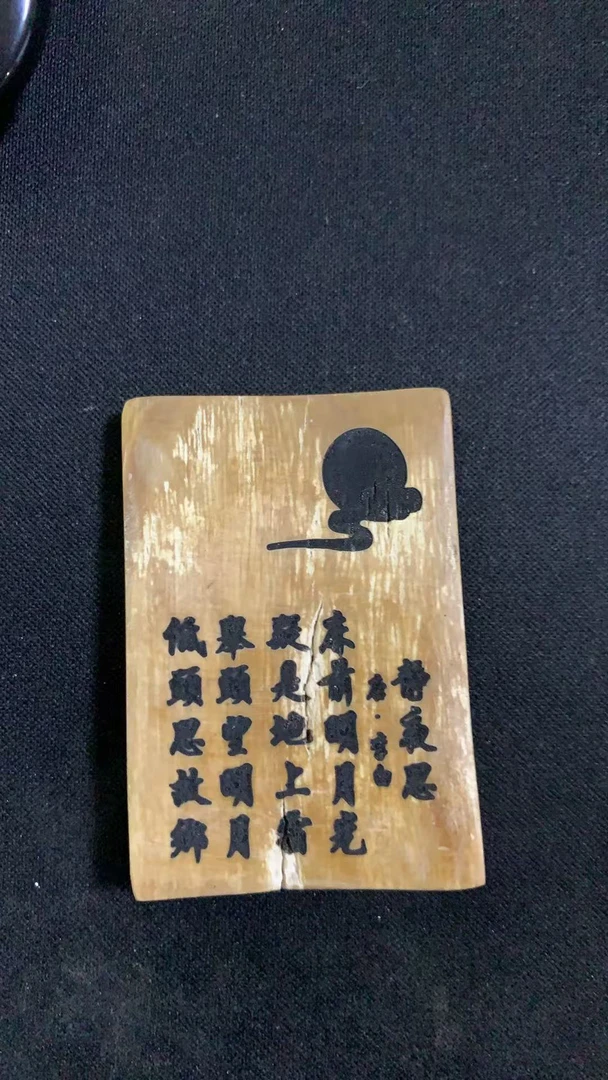 靜夜思
唐·李白
床前明月光
疑是地上霜
舉頭望明月
低頭思故鄉